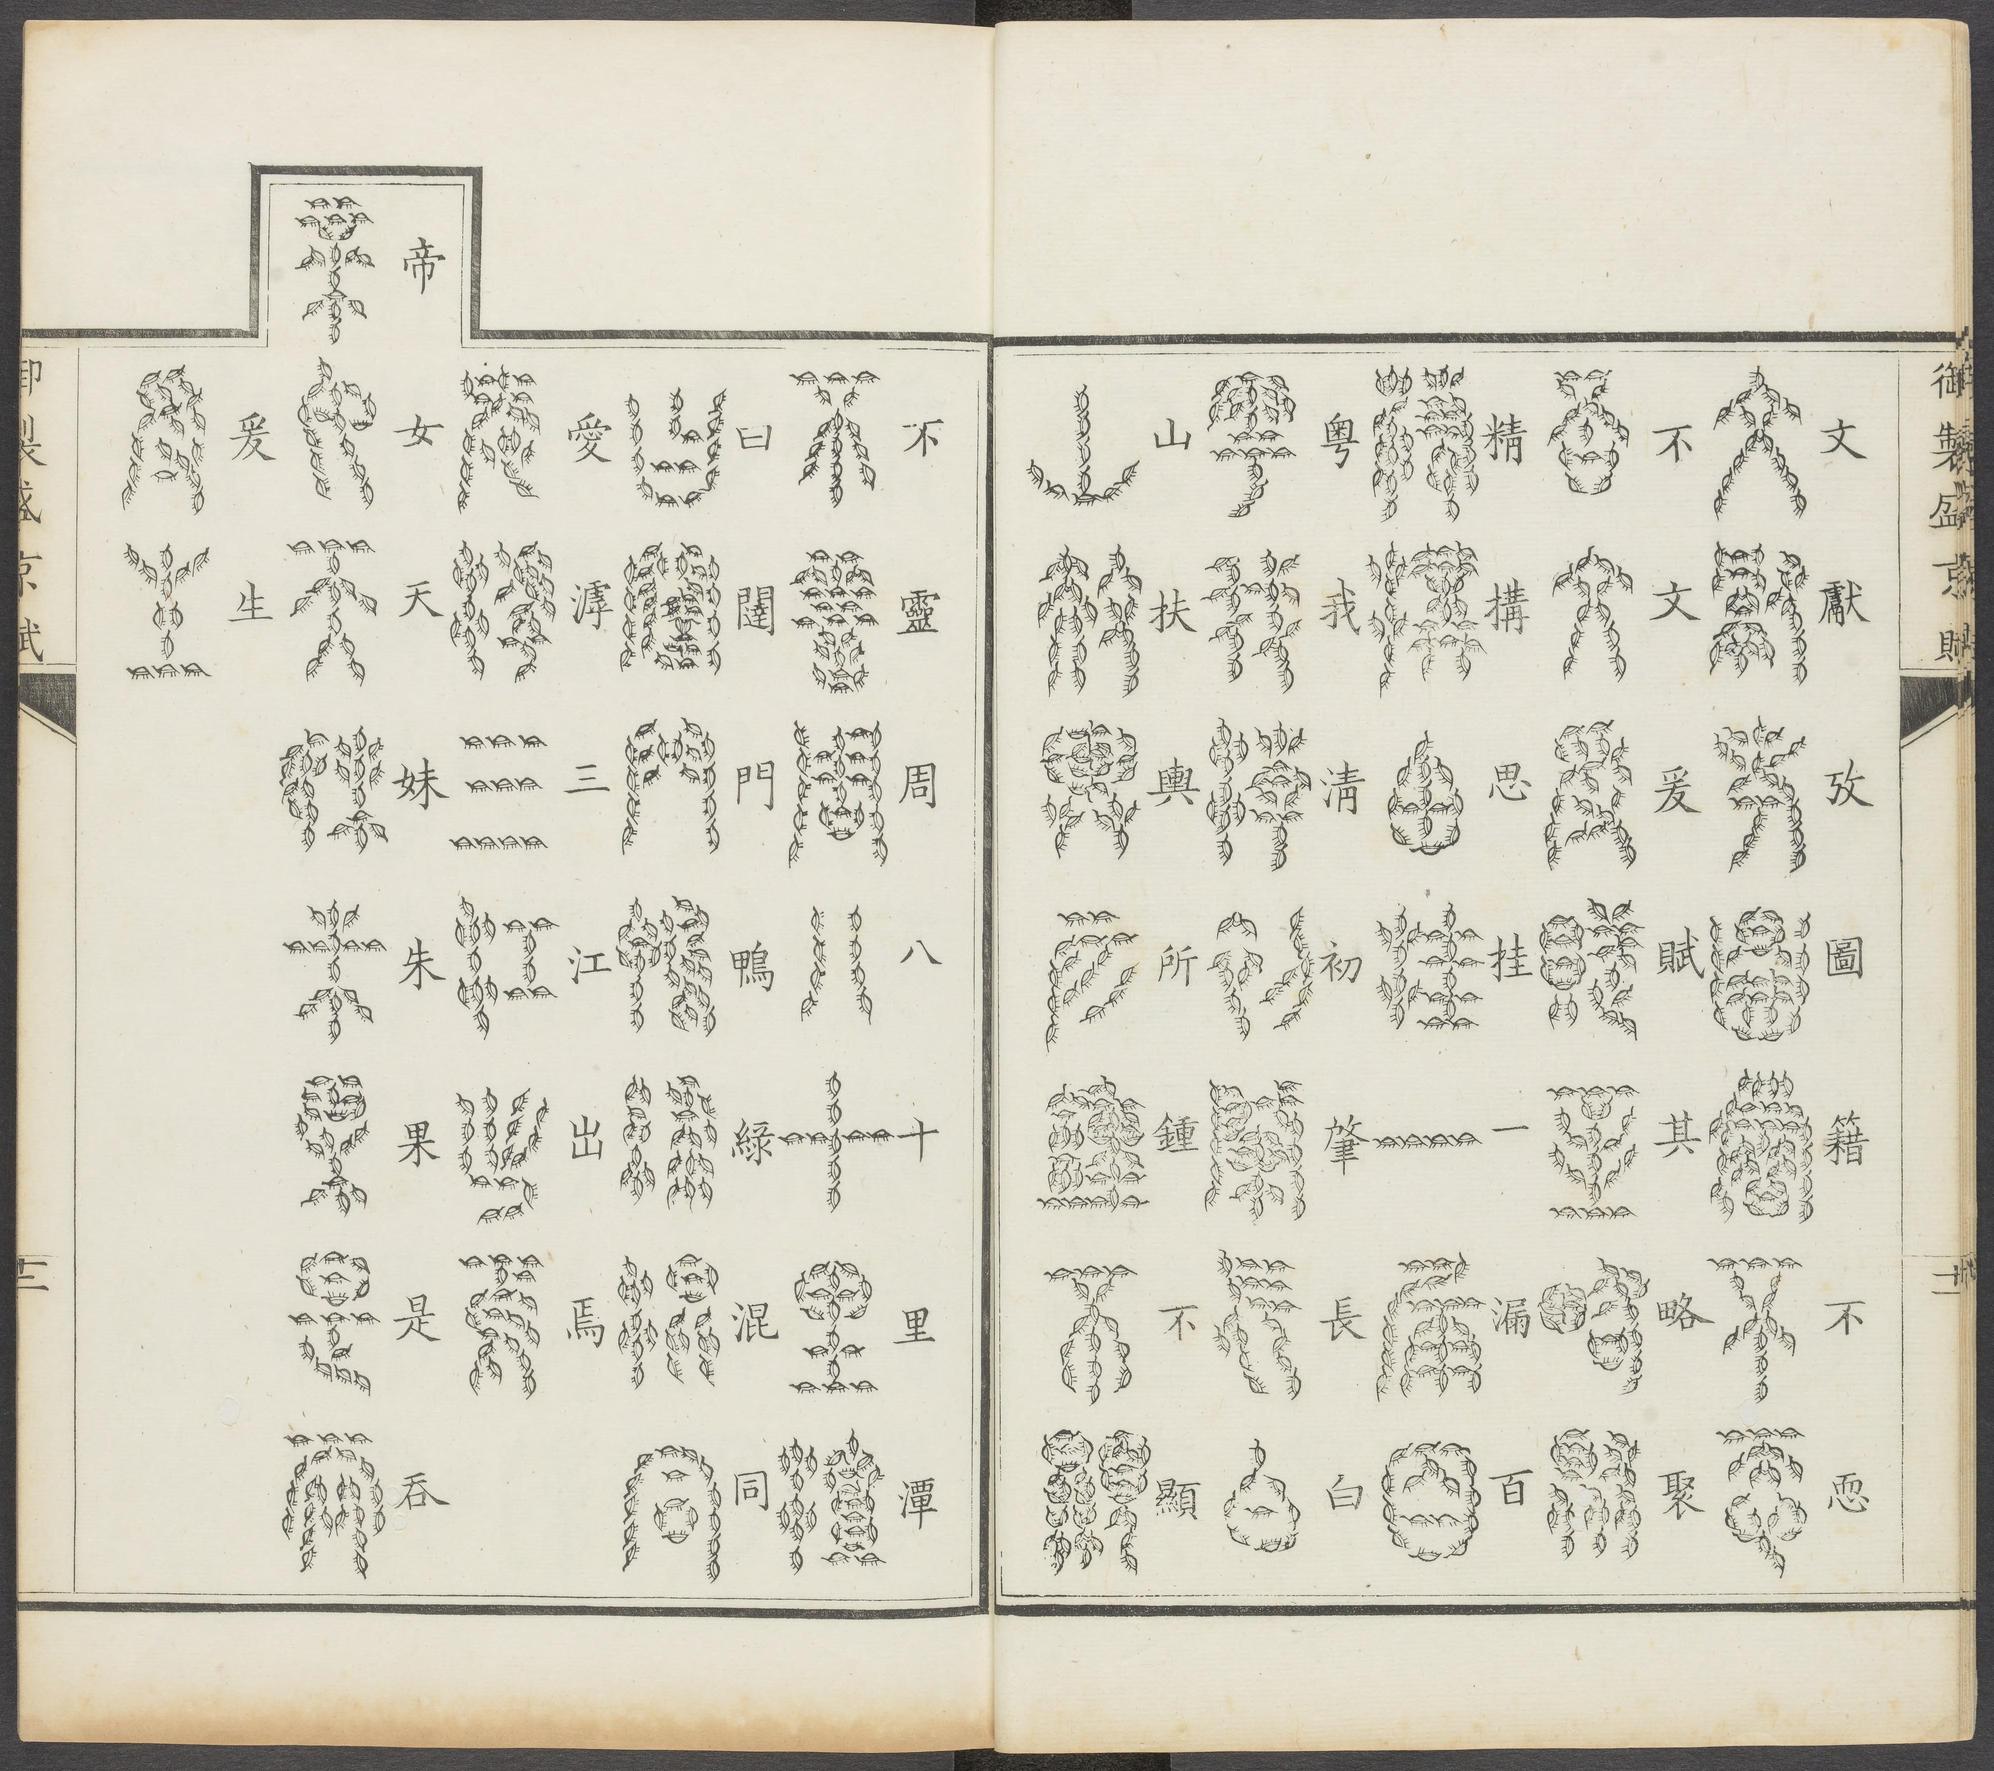 御製盛京賦
文獻攷圖籍不恧
不文爰賦其略聚
精構思挂一漏百
粵我淸初肇長白
山扶輿所鍾不顯
不靈周八十里潭
曰闥門鴨綠混同
愛滹三江出焉
帝女天妹朱果是吞
爰生
御製盛京賦